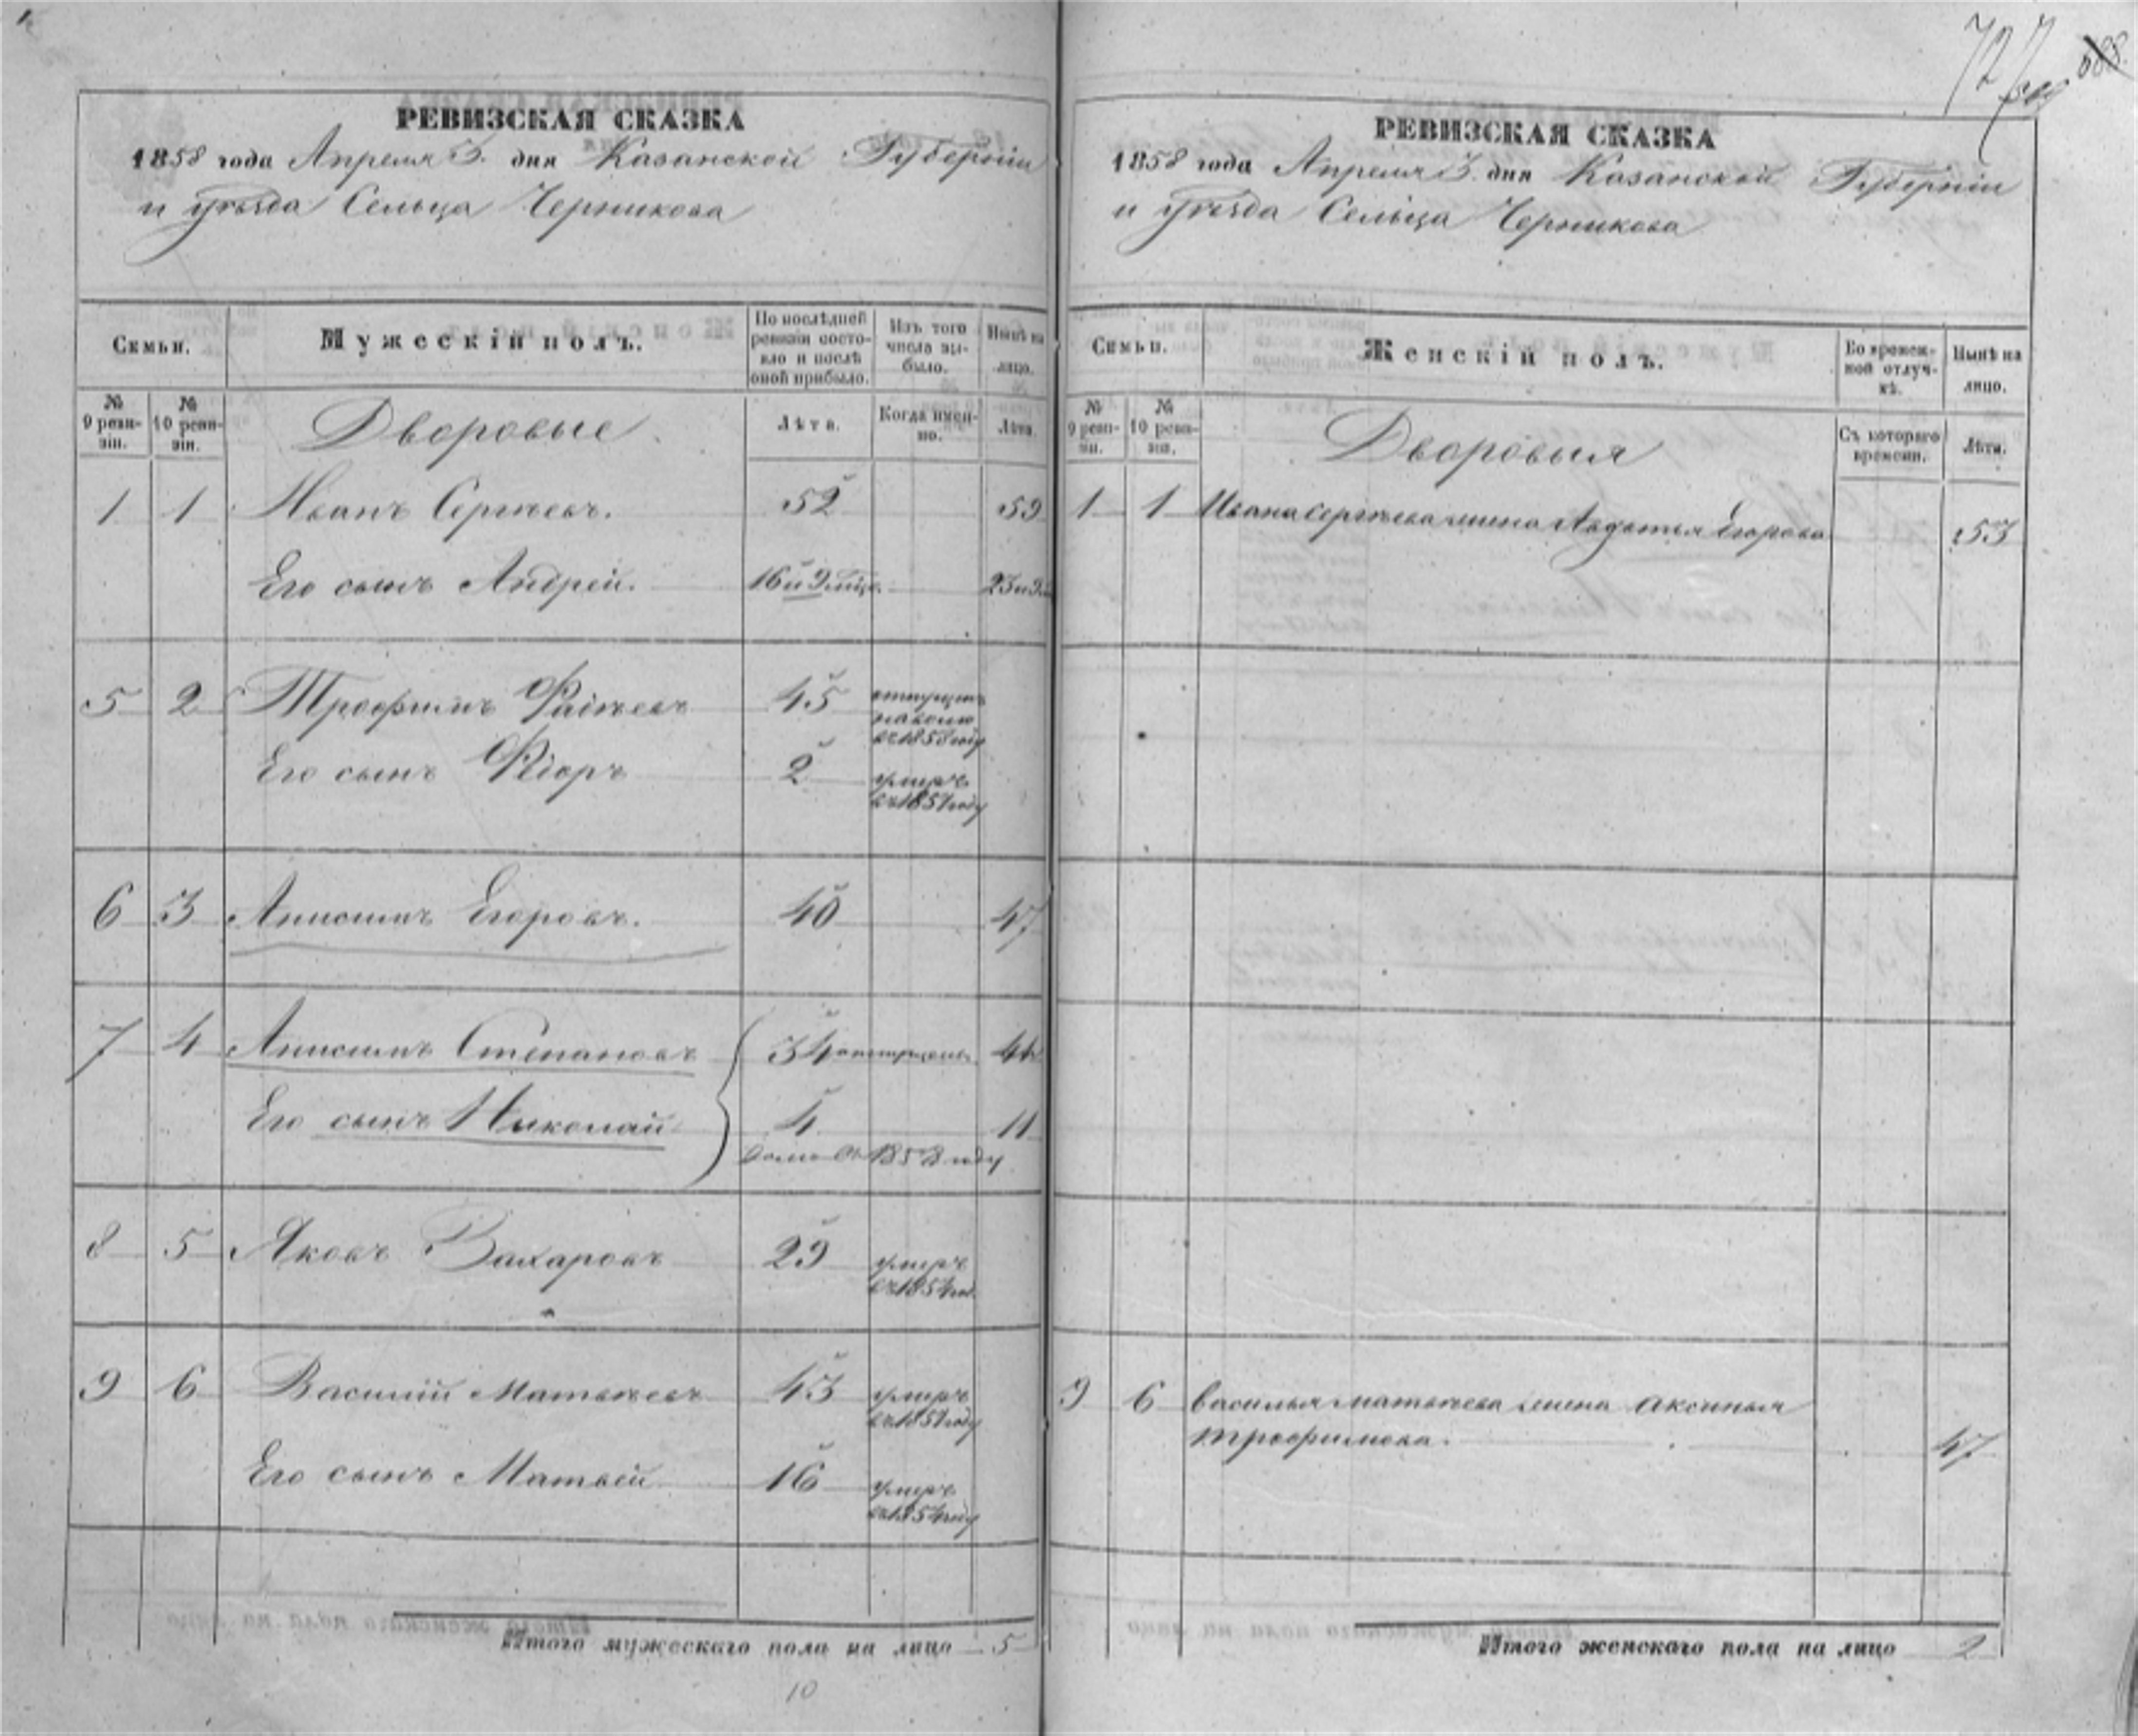 727
688.
РЕВИЗСКАЯ СКАЗКА
1858 года Апреля 3. дня Казанской Губернiи
и уѣзда Сельца Черникова
Семьи.
Мужескiй полъ.
По послѣдней ревизiи состояло и послѣ оной прибыло.
Изъ того числа выбыло.
Нынѣ на лицо.
№ 9 ревизiи.
№ 10 ревизiи.
Дворовые
Лѣта.
Когда именно.
Лѣта.
1 1 Иванъ Сергѣевъ. 52 59
Его сынъ Андрей. 16 и 9 мѣц. 23 и 9
5 2 Трофимъ Фадѣевъ 45 отпущенъ на волю въ 1858 году
Его сынъ Ѳедоръ 2 умеръ въ 1857 году
6 3 Анисимъ Егоровъ. 40 47
7 4 Анисимъ Степановъ 34 отпущены 41
Его сынъ Николай 4 11
въ 1858 году
8 5 Яковъ Захаровъ 29 умеръ въ 1854 год
9 6 Василiй Матвѣевъ 43 умеръ въ 1857 году
Его сынъ Матвей 16 умеръ въ 1854 году
Итого мужескаго пола на лицо 5
10
РЕВИЗСКАЯ СКАЗКА
1858 года Апреля 3. дня Казанской Губернiи
и уѣзда Сельца Черникова
Семьи.
Женскiй полъ.
Во временной отлучкѣ.
Нынѣ на лицо.
№ 9 ревизiи.
№ 10 ревизiи.
Дворовыя
Съ котораго времени.
Лѣта.
1 1 Ивана Сергѣева жена Авдотья Егорова 53
9 6 Василья Матвѣева жена Аксинья
Трофимова. 47
Итого женскаго пола на лицо 2